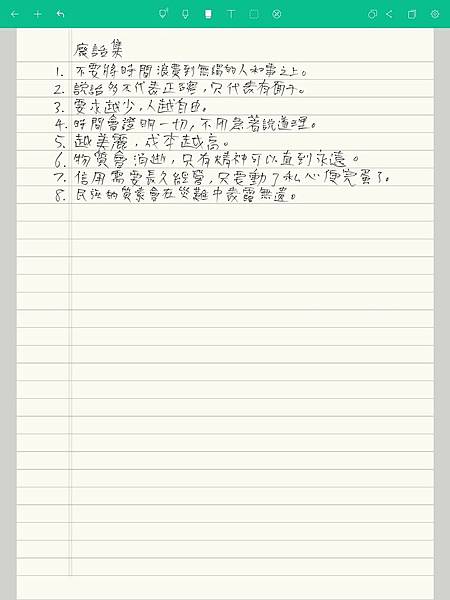 廢話集
1. 不要將時間浪費到無謂的人和事之上。
2. 說話多不代表正確,只代表有面子。
3. 要求越少,人越自由。
4. 時間會證明一切,不用急著說道理。
5. 越美麗,成本越高。
6. 物質會消逝,只有精神可以直到永遠。
7. 信用需要長久經營,只要動了私心便完蛋了。
8. 民族的質素會在災難中表露無遺。